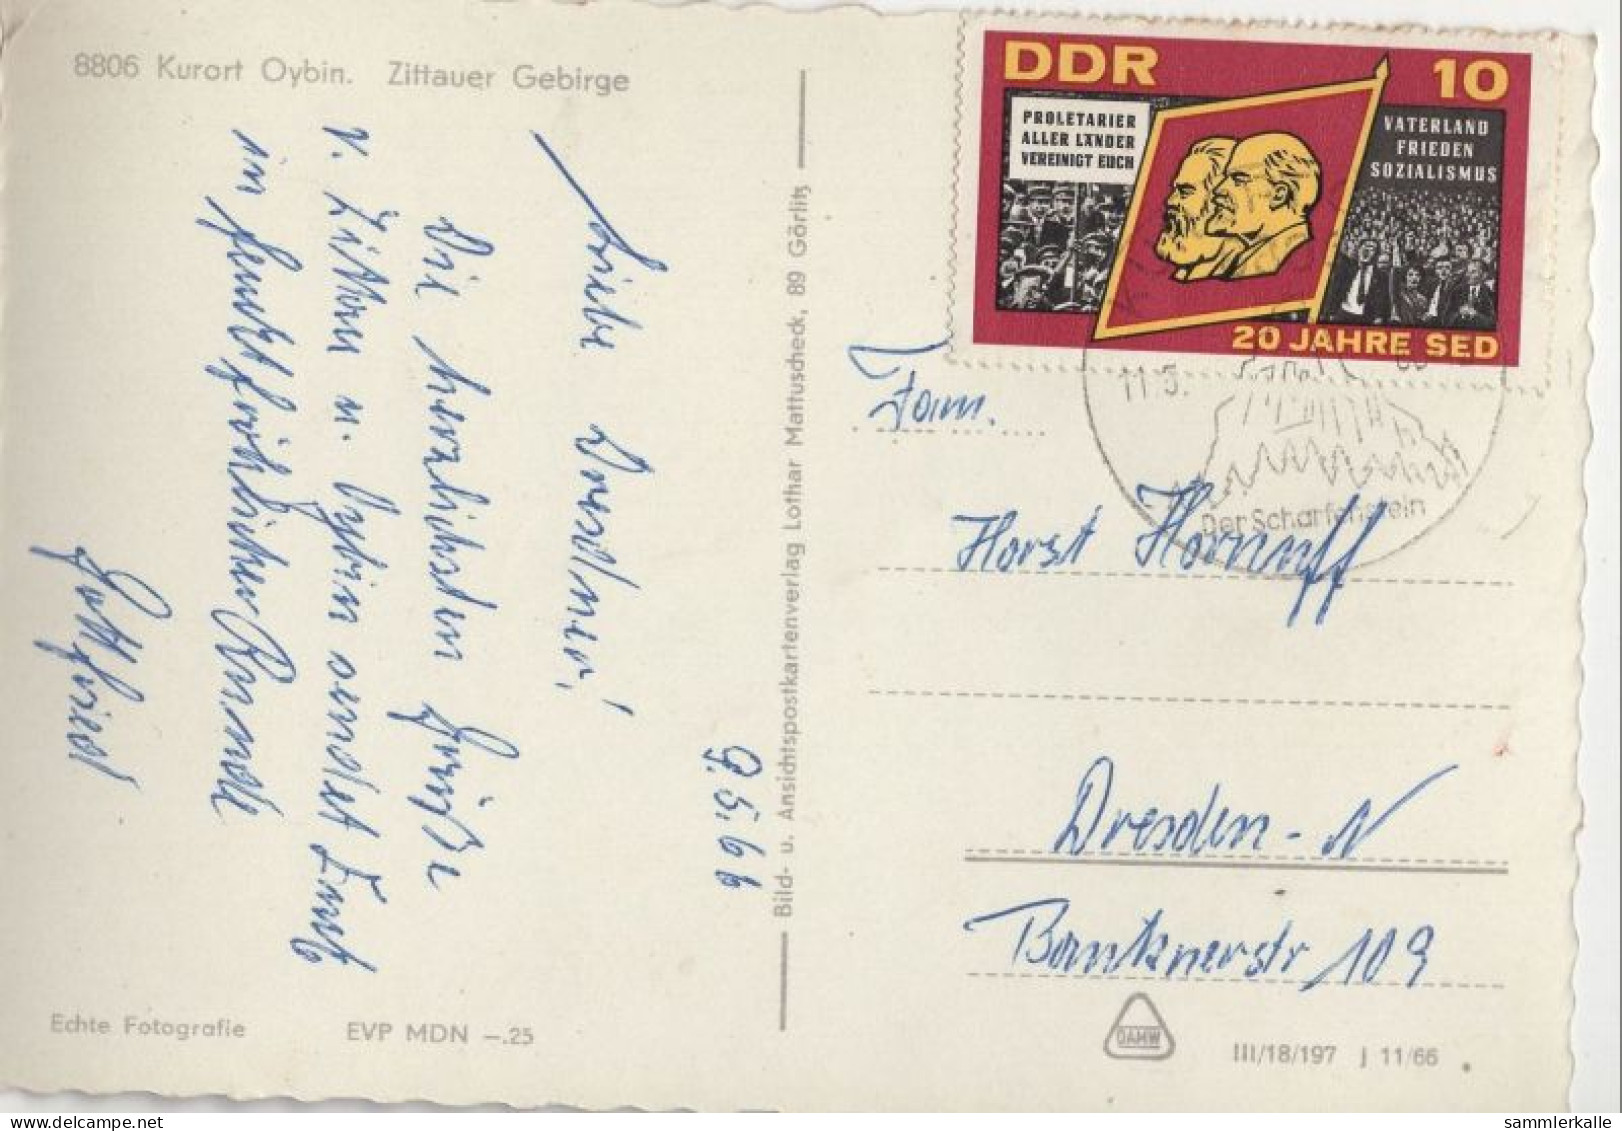 8806 Kurort Oybin. Zittauer Gebirge
9.5.66
Liebe Dresdner!
Die herzlichsten Grüße
v. Zittau u. Oybin sendet Euch
in feuchtfröhlicher Runde
Gottfried
Echte Fotografie
EVP MDN –.25
Bild- u. Ansichtspostkartenverlag Lothar Mattuscheck, 89 Görlitz
DDR 10
PROLETARIER
ALLER LÄNDER
VEREINIGT EUCH
VATERLAND
FRIEDEN
SOZIALISMUS
20 JAHRE SED
11.5.
Der Scharfenstein
Fam.
Horst Hornuff
Dresden-N
Bautznerstr 109
DAMW
III/18/197 J 11/66
sammlerkalle